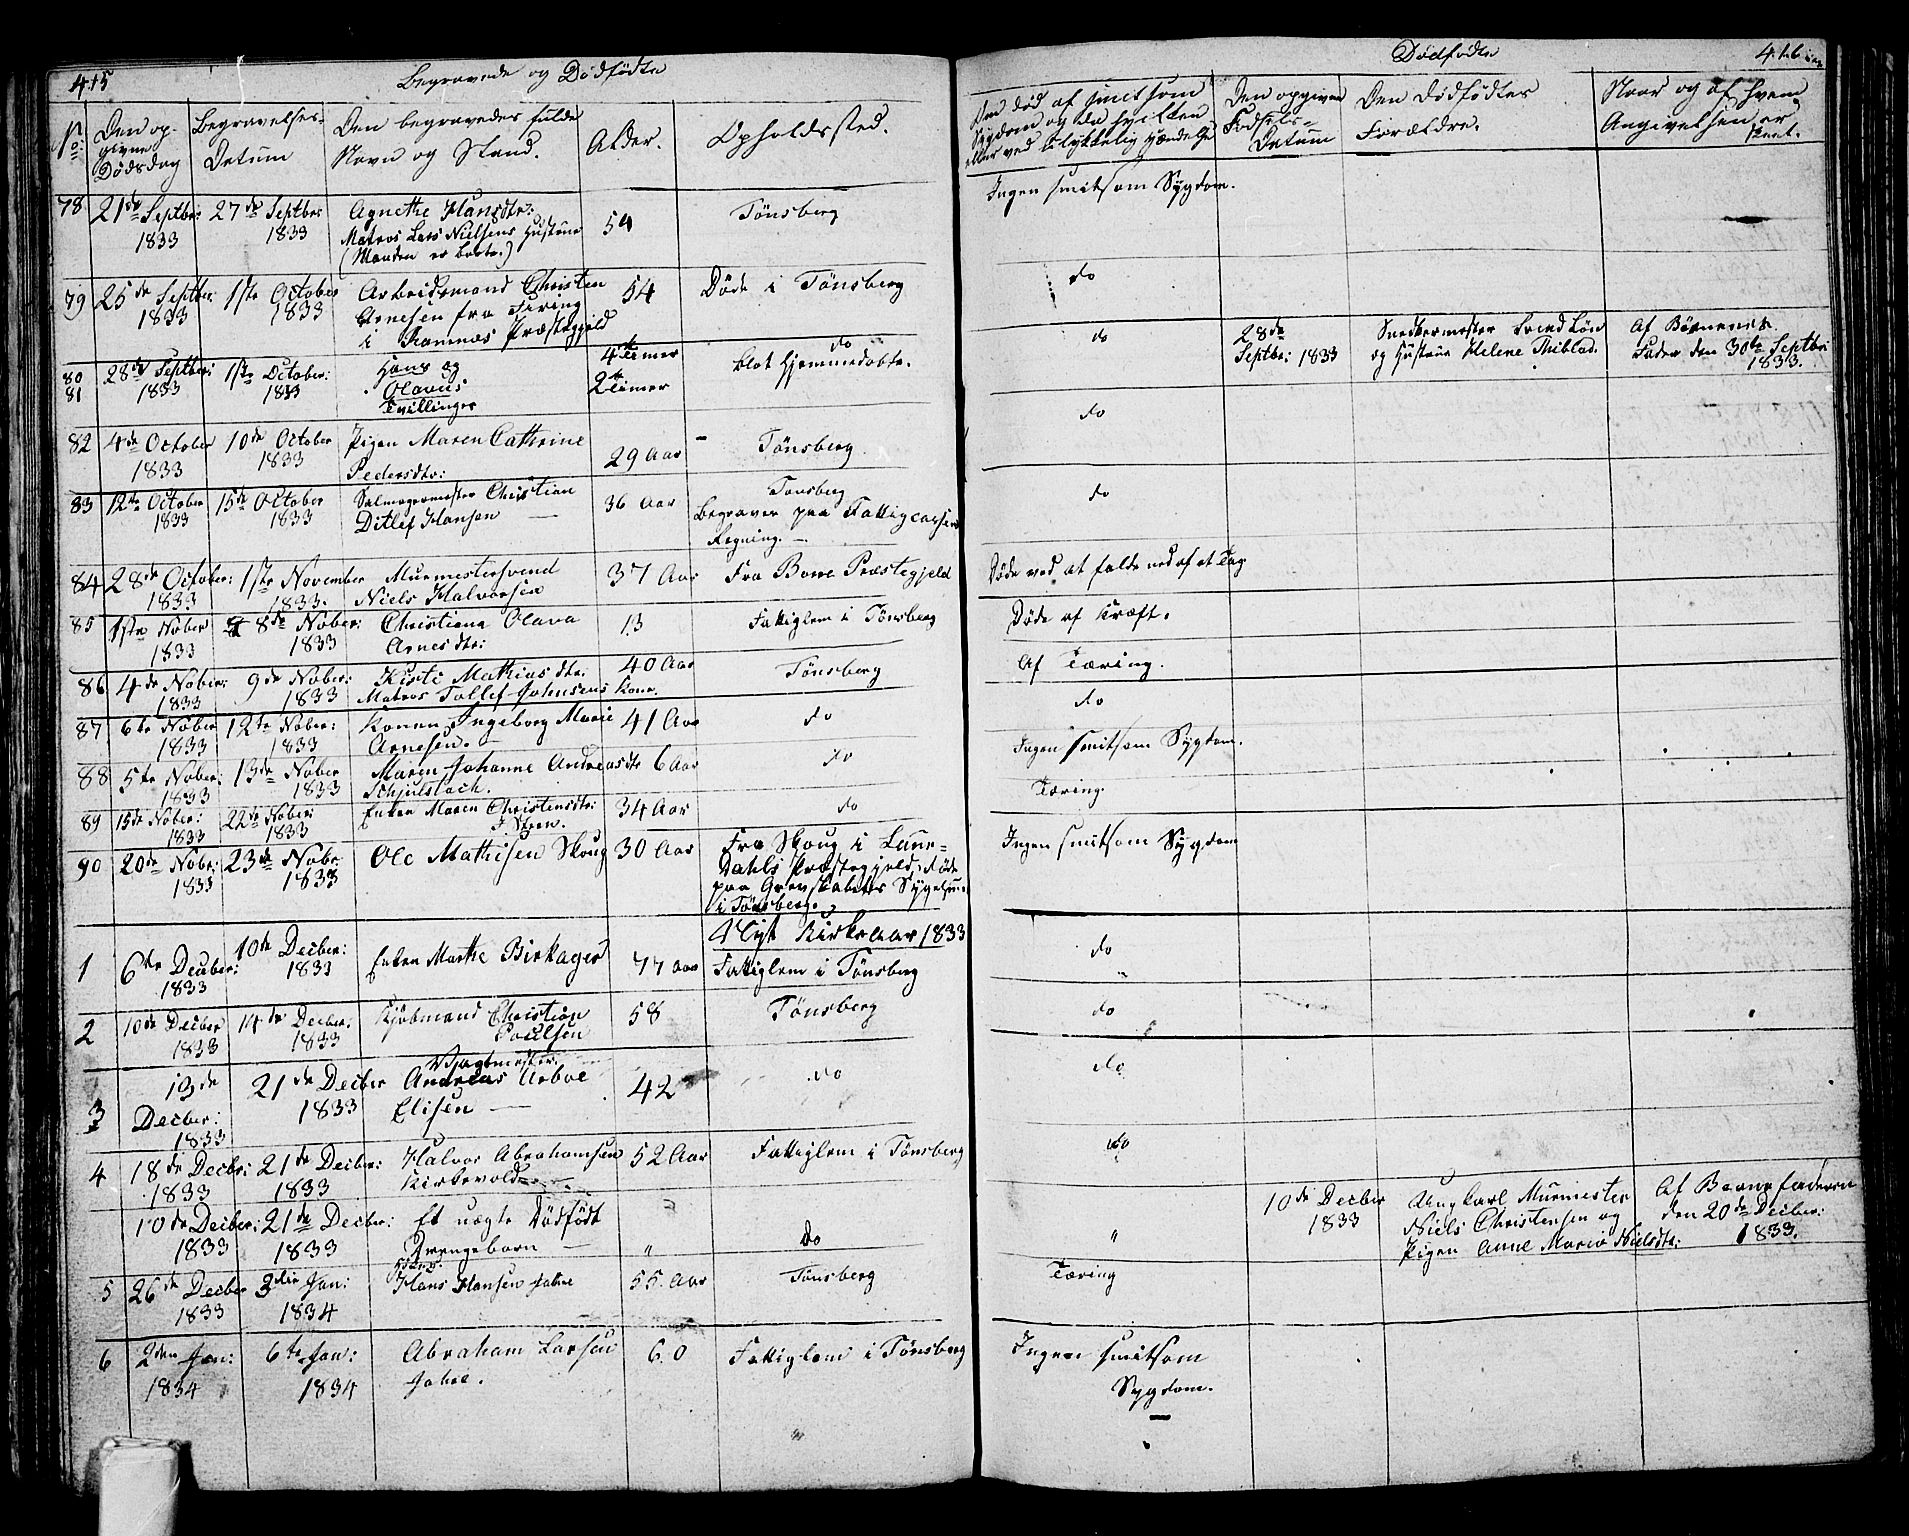 415
Begravede og Dødfødte
No:
Den op-
givne
Dødsdag
Begravelses-
Datum
Den begravedes fulde
Navn og Stand.
Alder.
Opholdssted.
78 21de Septbr: 1833 27de Septbr 1833 Agnethe Hansdtr: 54 Tönsberg
Matros Lars Nielsens Hustrue
(Manden er borte.)
79 25de Septbr: 1833 1ste October 1833 Arbeidsmand Christen 54 Døde i Tönsberg
Arnesen fra
i Ramnæs Præstegjeld
80 28de Septbr: 1833 1ste October: 1833 Hans og 4 Timer do
81 Olavus 2 Timer blot Hjemmedøbte.
Tvillinger
82 4de October 1833 10de October 1833 Pigen Maren Cathrine 29 Aar Tönsberg
Pedersdtr:
83 12te October 1833 15de October 1833 Salmagermester Christian 36 Aar Tonsberg
Ditlef Hansen — Begraver paa Fattigcassens
Regning. —
84 28de October: 1833 1ste November 1833. Murmestersvend 37 Aar Fra Borre Præstegjeld
Niels Halvorsen
85 1ste Nober 1833 8de Nober: 1833 Christiana Olava 13 Fattiglem i Tönsberg
Arnesdtr:
86 4de Nober: 1833 9de Nober: 1833 Kirsti Mathiasdtr. 40 Aar Tönsberg
Matros Tollef Johnsens Kone.
87 6te Nober 1833 12te Nober: 1833 Konen Ingeborg Marie 41 Aar do
Arnesen.
88 5te Nober: 1833 13de Nober 1833 Maren Johanne Andreasdtr 6 Aar do
Schjelsbach.
89 15de Nober: 1833 22de Nober: 1833 Enken Maren Christensdtr: 34 Aar do
90 20de Nobr: 1833 23de Nobr 1833 Ole Mathisen Skoug 30 Aar Fra Skoug i Laur-
Dahls Præstegjeld, døde
paa Grevskabets Sygehuus
i Tönsberg.
Nyt Kirkeaar 1833
1 6te Decber: 1833 10de Decber: 1833 Enken Marthe Birkager 77 Aar Fattiglem i Tönsberg
2 10de Decber 1833 14de Decber: 1833 Kjöbmand Christian 58 Tönsberg
Poulsen
3 13de Decber: 1833 21de Decber 1833 Vagtmester. 42 do
Andreas Aaboe
Elisen —
4 18de Decbr: 1833 21de Decber: 1833 Halvor Abrahamsen 52 Aar Fattiglem i Tönsberg
Kirkevold
10de Decber: 1833 21de Decber: 1833 Et uægte Dödfödt „ do
Drengebarn —
5 26de Decber 1833 3die Jan: 1834 Hans Hansen Jahre 55. Aar Tönsberg
6 2den Jan: 1834 6te Jan: 1834 Abraham Larsen 60 Fattiglem i Tönsberg
Jahre.
Dødfødte
416
Om død af smitsom
Sygdom og da hvilken
eller ved ulykkelig Hændelse
Den opgivne
Fødsels-
Datum
Den Dödfödtes
Forældre.
Naar og af hvem
Angivelsen er
skeet.
Ingen smitsom Sygdom.
do
do 28de Septbr: 1833 Snedkermester Svend Lön Af Börnenes
og Hustrue Helene Thiblad. Fader den 30te Septbr: 1833.
do
do
Døde ved at falde ned af et Tag
Døde af Kræft.
Af Tæring.
do
Ingen smitsom Sygdom.
Tæring.
Ingen smitsom Sygdom
do
„
do
do
do
„ 10de Decber 1833 Ungkarl Murmester Af Barnefaderen
Niels Christensen og den 20de Decber:
Pigen Anne Marie Nielsdtr: 1833.
Tæring
Ingen smitsom
Sygdom.